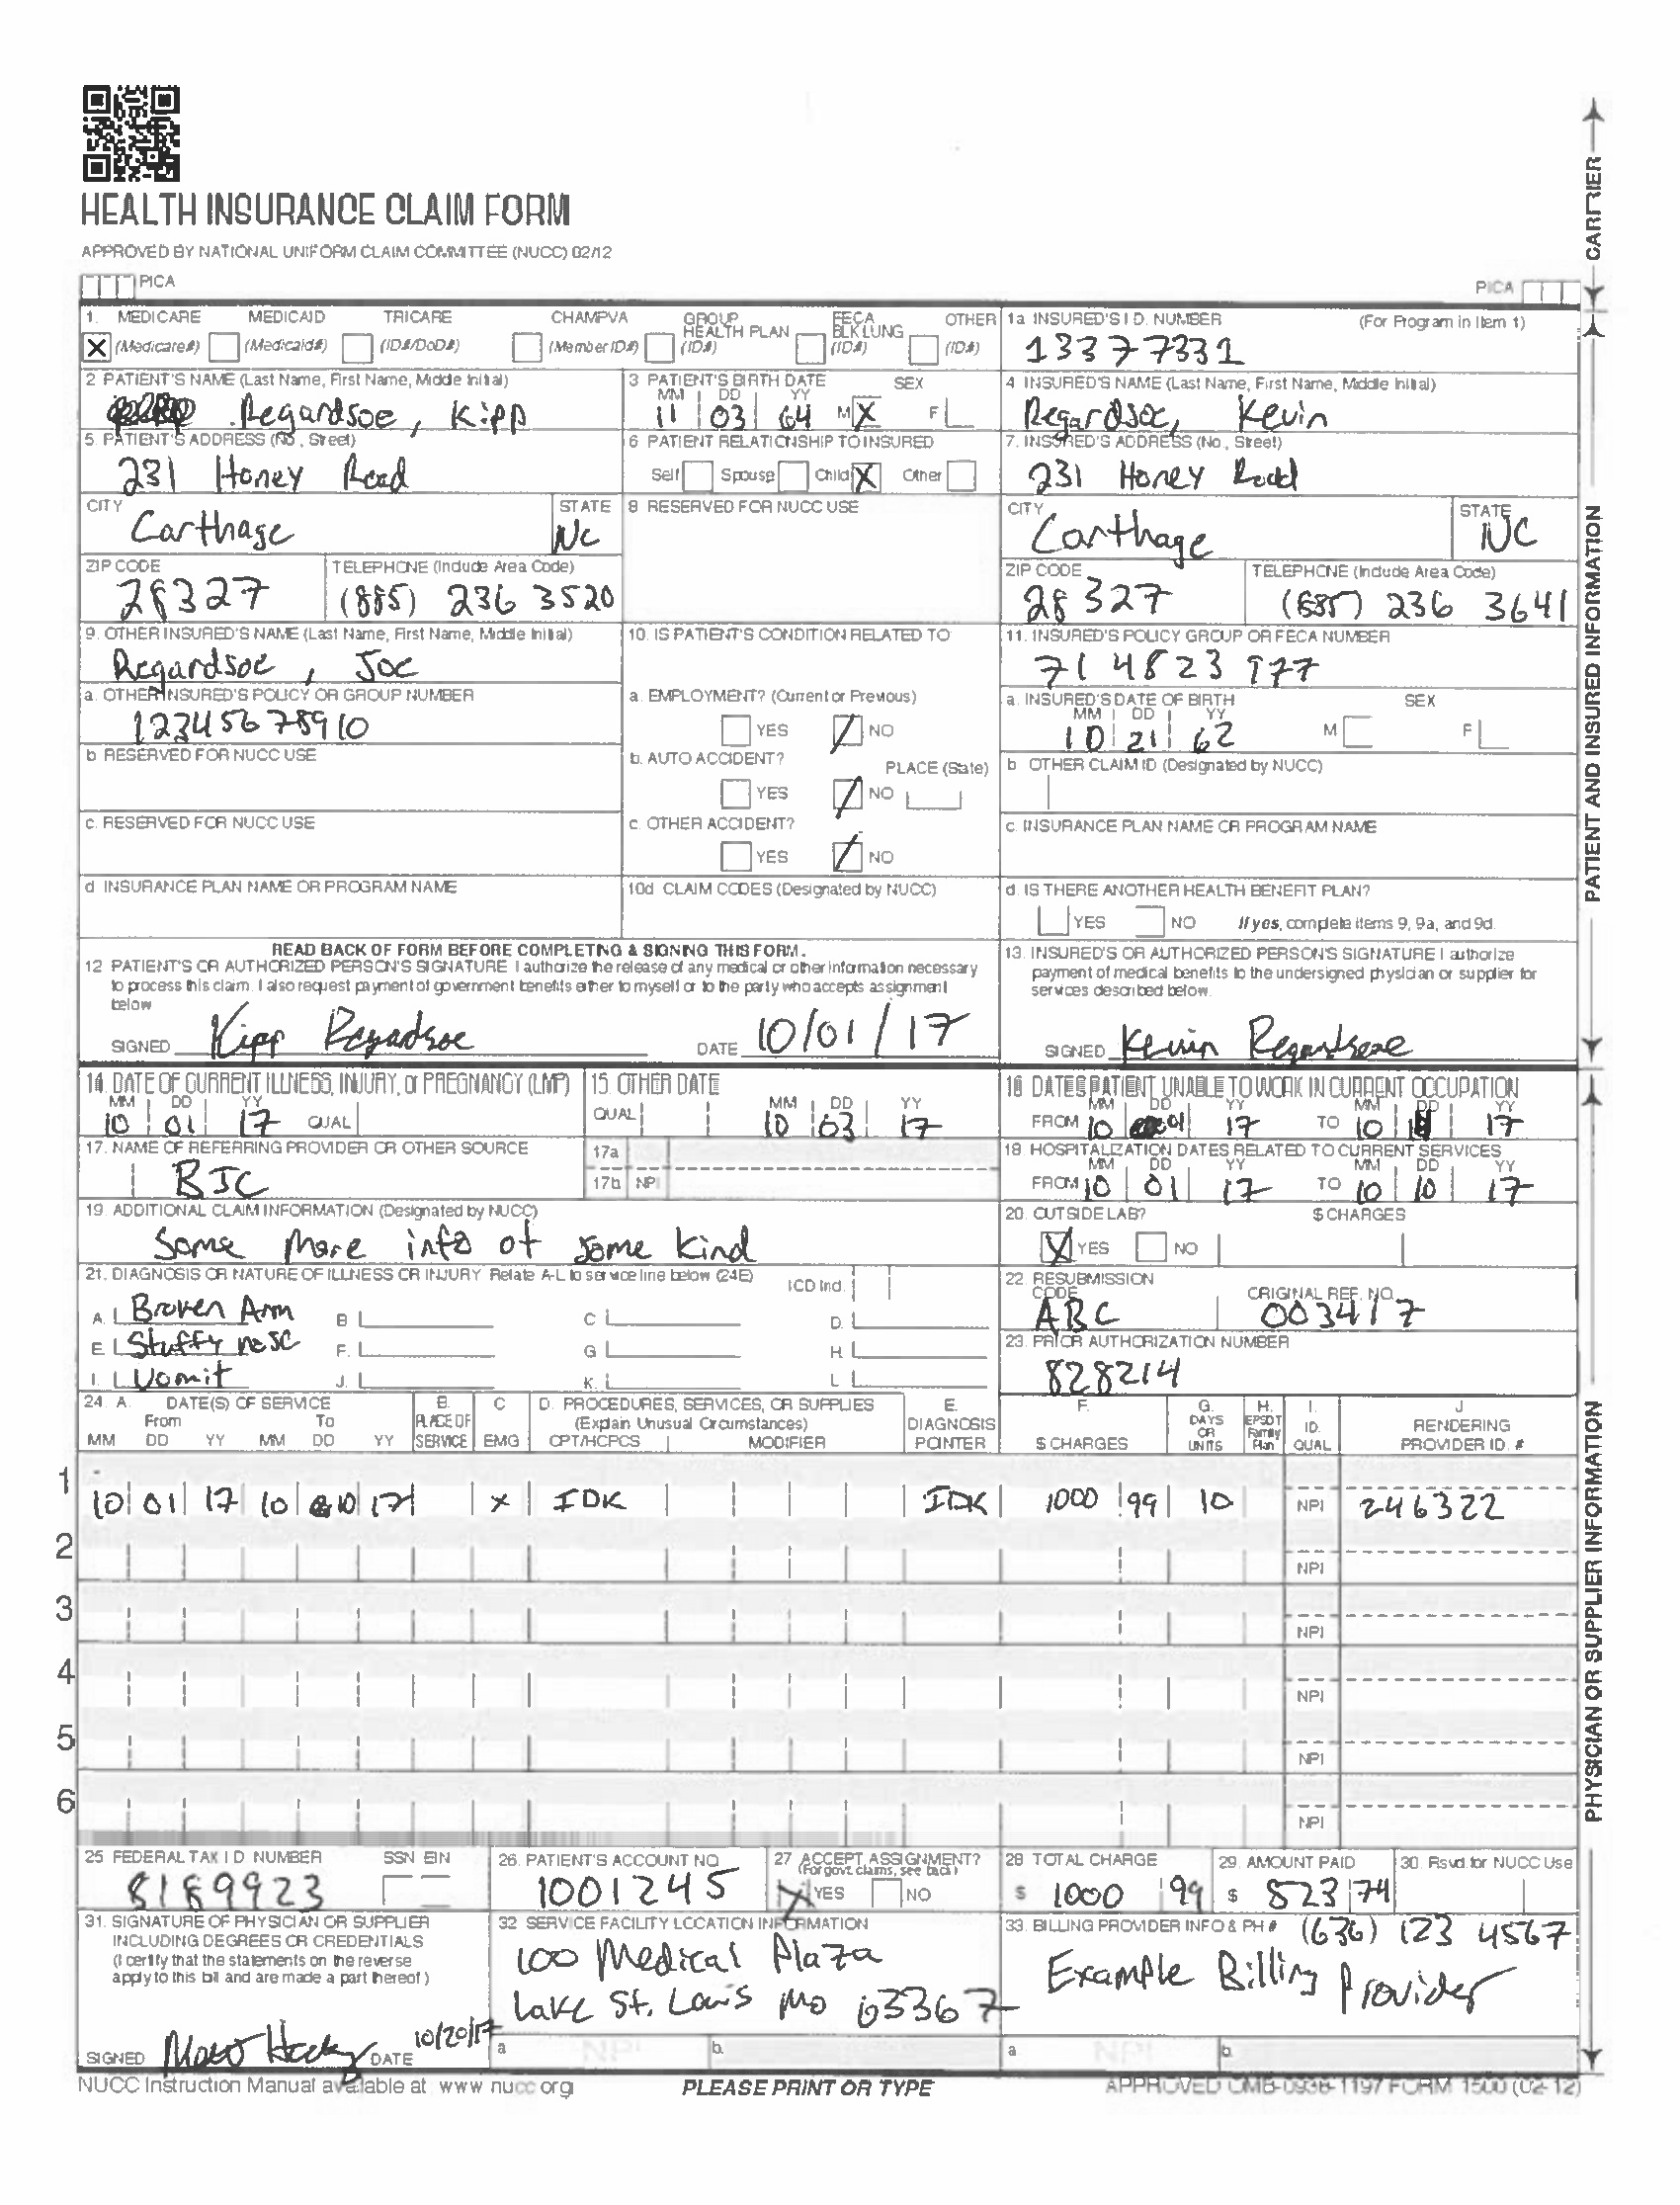 HEALTH INSURANCE CLAIM FORM
APPROVED BY NATIONAL UNIFORM CLAIM COMMITTEE (NUCC) 02/12
PICA
PICA
CARRIER
1. MEDICARE MEDICAID TRICARE CHAMPVA GROUP HEALTH PLAN FECA BLK LUNG OTHER
X (Medicare#) (Medicaid#) (ID#/DoD#) (Member ID#) (ID#) (ID#) (ID#)
1a INSURED'S I.D. NUMBER (For Program in Item 1)
13377331
2 PATIENT'S NAME (Last Name, First Name, Middle Initial)
Regardsoe, Kipp
3 PATIENT'S BIRTH DATE SEX
MM DD YY
11 03 64 M X F
4 INSURED'S NAME (Last Name, First Name, Middle Initial)
Regardsoe, Kevin
5 PATIENT'S ADDRESS (No., Street)
231 Honey Road
6 PATIENT RELATIONSHIP TO INSURED
Self Spouse Child X Other
7. INSURED'S ADDRESS (No., Street)
231 Honey Road
CITY STATE
Carthage NC
8 RESERVED FOR NUCC USE
CITY STATE
Carthage NC
ZIP CODE TELEPHONE (Include Area Code)
28327 (885) 236 3520
ZIP CODE TELEPHONE (Include Area Code)
28327 236 3641
9. OTHER INSURED'S NAME (Last Name, First Name, Middle Initial)
Regardsoe, Joe
10. IS PATIENT'S CONDITION RELATED TO
11. INSURED'S POLICY GROUP OR FECA NUMBER
714823 977
a. OTHER INSURED'S POLICY OR GROUP NUMBER
12345678910
a. EMPLOYMENT? (Current or Previous)
YES NO
a. INSURED'S DATE OF BIRTH SEX
MM DD YY
10 21 62 M F
b RESERVED FOR NUCC USE
b. AUTO ACCIDENT? PLACE (State)
YES NO
b OTHER CLAIM ID (Designated by NUCC)
c. RESERVED FOR NUCC USE
c. OTHER ACCIDENT?
YES NO
c. INSURANCE PLAN NAME OR PROGRAM NAME
d INSURANCE PLAN NAME OR PROGRAM NAME
10d CLAIM CODES (Designated by NUCC)
d. IS THERE ANOTHER HEALTH BENEFIT PLAN?
YES NO If yes, complete items 9, 9a, and 9d.
PATIENT AND INSURED INFORMATION
READ BACK OF FORM BEFORE COMPLETING & SIGNING THIS FORM.
12 PATIENT'S OR AUTHORIZED PERSON'S SIGNATURE I authorize the release of any medical or other information necessary
to process this claim. I also request payment of government benefits either to myself or to the party who accepts assignment
below
SIGNED Kipp Regardsoe DATE 10/01/17
13. INSURED'S OR AUTHORIZED PERSON'S SIGNATURE I authorize
payment of medical benefits to the undersigned physician or supplier for
services described below.
SIGNED Kevin Regardsoe
14. DATE OF CURRENT ILLNESS, INJURY, or PREGNANCY (LMP)
MM DD YY
10 01 17 QUAL
15. OTHER DATE
QUAL MM DD YY
10 03 17
16 DATES PATIENT UNABLE TO WORK IN CURRENT OCCUPATION
MM DD YY MM DD YY
FROM 10 01 17 TO 10 17
17. NAME OF REFERRING PROVIDER OR OTHER SOURCE
BJC
17a
17b NPI
18. HOSPITALIZATION DATES RELATED TO CURRENT SERVICES
MM DD YY MM DD YY
FROM 10 01 17 TO 10 10 17
19. ADDITIONAL CLAIM INFORMATION (Designated by NUCC)
Some more info of some kind
20. OUTSIDE LAB? $ CHARGES
X YES NO
21. DIAGNOSIS OR NATURE OF ILLNESS OR INJURY Relate A-L to service line below (24E) ICD Ind.
A. Broken Arm B C D.
E. Stuffy nose F. G H
I. Vomit J. K. L
22. RESUBMISSION CODE ORIGINAL REF. NO.
ABC 003417
23. PRIOR AUTHORIZATION NUMBER
828214
24. A. DATE(S) OF SERVICE B. C D. PROCEDURES, SERVICES, OR SUPPLIES E. F. G. H. I. J
From To PLACE OF (Explain Unusual Circumstances) DIAGNOSIS DAYS OR EPSDT Family ID. RENDERING
MM DD YY MM DD YY SERVICE EMG CPT/HCPCS MODIFIER POINTER $ CHARGES UNITS Plan QUAL PROVIDER ID. #
1 10 01 17 10 10 17 X IDK IDK 1000 99 10 NPI 246322
2 NPI
3 NPI
4 NPI
5 NPI
6 NPI
25 FEDERAL TAX I D NUMBER SSN EIN
8189923
26. PATIENT'S ACCOUNT NO
1001245
27 ACCEPT ASSIGNMENT?
(For govt. claims, see back)
X YES NO
28 TOTAL CHARGE
$ 1000 99
29. AMOUNT PAID
$ 823 74
30. Rsvd. for NUCC Use
31. SIGNATURE OF PHYSICIAN OR SUPPLIER
INCLUDING DEGREES OR CREDENTIALS
(I certify that the statements on the reverse
apply to this bill and are made a part thereof)
SIGNED DATE 10/20/17
32 SERVICE FACILITY LOCATION INFORMATION
100 Medical Plaza
Lake St. Louis Mo 63367
a NPI b.
33. BILLING PROVIDER INFO & PH # (636) 123 4567
Example Billing Provider
a NPI b.
PHYSICIAN OR SUPPLIER INFORMATION
NUCC Instruction Manual available at www nucc org
PLEASE PRINT OR TYPE
APPROVED OMB-0938-1197 FORM 1500 (02-12)